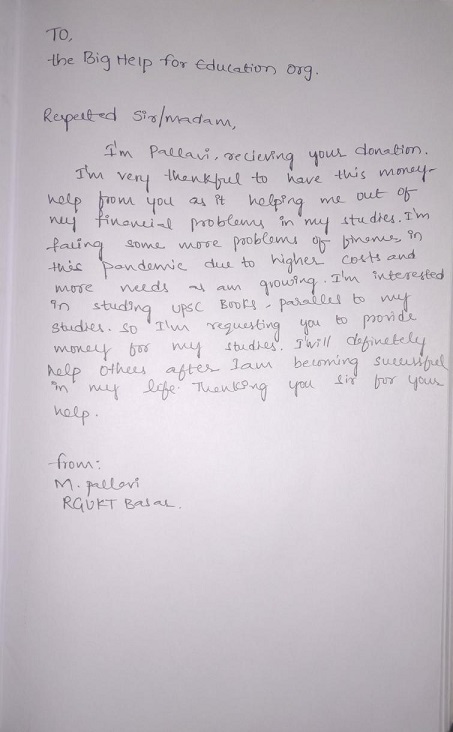 TO,
the Big Help for Education org.
Respected Sir/madam,
I'm Pallavi, recieving your donation.
I'm very thankful to have this money-
help from you as it helping me out of
my financial problems in my studies. I'm
facing some more problems of finance, in
this pandemic due to higher costs and
more needs as am growing. I'm interested
in studing UPSC Books, parallel to my
studies. so I'm requesting you to provide
money for my studies. I will definetely
help others after I am becoming successful
in my life. Thanking you sir for your
help.
from:
M. pallavi
RGUKT Basar.